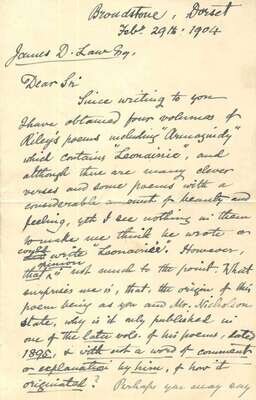 Broadstone, Dorset
Feby. 29th. 1904
James D. Law Esq.
Dear Sir
Since writing to you
I have obtained four volumes of
Riley's poems including "Armazindy"
which contains "Leonainie", and
although there are many clever
verses and some poems with a
considerable amount of beauty and
feeling, yet I see nothing in them
to make me think he wrote or
could wrote "Leonainie". However,
that opinion is not much to the point. What
surprises me is, that, the origin of this
poem being as you and Mr. Nicholson
state, why is it only published in
one of the later vols. of his poems, dated
1895, & with not a word of comment
or explanation by him, & how it
originated? Perhaps you may say